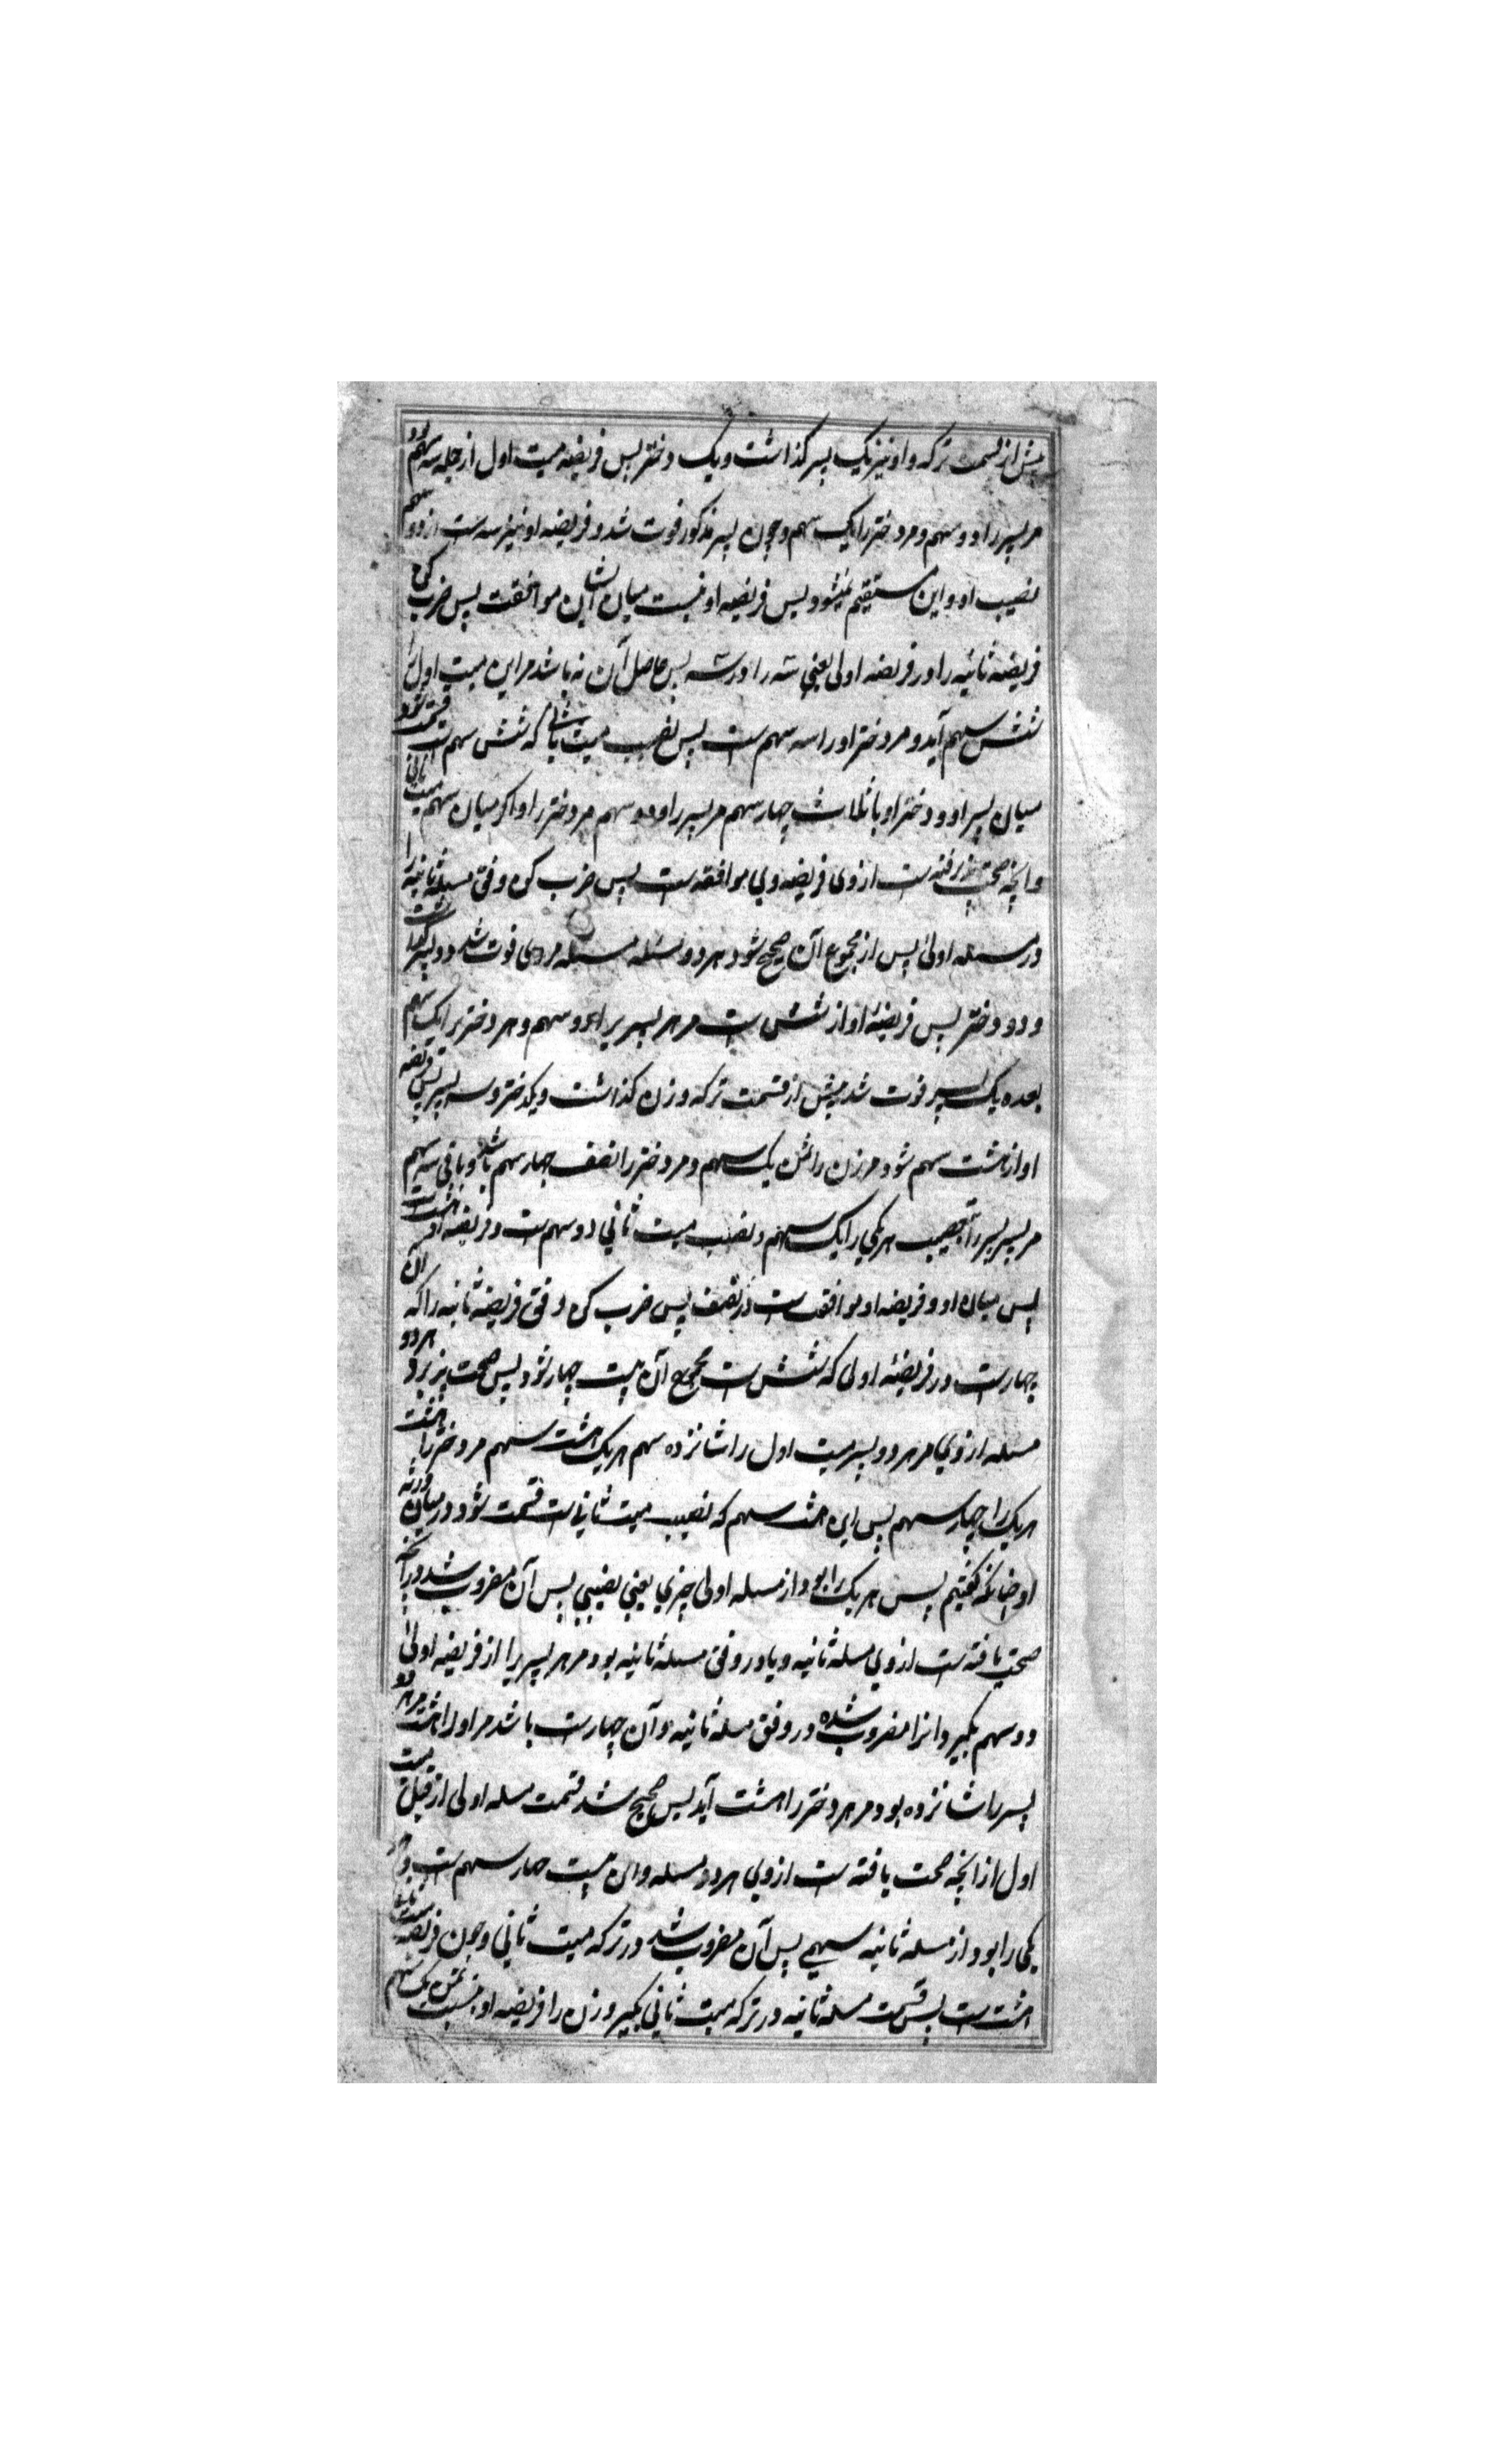 پیش از قسمت ترکه و او نیز یک پسر گذاشت و یک دختر پس فریضه میت اول از جمله سه سهم بود
مر پسر را دو سهم و مر دختر را یک سهم و چون پسر مذکور فوت شد و فریضه او نیز سه است از دو سهم
نصیب او و این مستقیم نمیشود پس فریضه او نیست میان ایشان موافقت پس ضرب کن
فریضه ثانیه را در فریضه اولی یعنی سه را در سه پس حاصل آن نه باشد مر این میت اول را
شش سهم آید و مر دختر او را سه سهم است پس نصیب میت ثانی که شش سهم است قسمت شود
میان پسر او و دختر او باثلاث چهار سهم مر پسر را و دو سهم مر دختر را و اگر میان سهم میت ثانی
و آنچه صحت پذیرفته است از وی فریضه وی موافقه است پس ضرب کن وفق مسئله ثانیه را
در مسئله اولی پس از مجموع آن صحیح شود هر دو مسئله مسئله مردی فوت شد دو پسر گذاشت
و دو دختر پس فریضهٔ او از شش است مر هر پسر را دو سهم و هر دختر را یک سهم
بعده یک پسر فوت شد پیش از قسمت ترکه و زن گذاشت و یکدختر و سه پسر پسر پس فریضه
او از هشت سهم شود مر زن را ثمن یک سهم و مر دختر را نصف چهار سهم باشد و باقی سه سهم
مر پسر پسر را نصیب هر یکی را یک سهم و نصیب میت ثانی دو سهم است و فریضه او هشت است
پس میان او و فریضه او موافقت است در نصف پس ضرب کن وفق فریضه ثانیه را که آن
چهار است در فریضهٔ اولی که شش است مجموع آن بیست چهار شود پس صحت پذیرد هر دو
مسئله از وی مر هر دو پسر میت اول را شانزده سهم هر یک هشت سهم مر دختر را هشت
هر یک را چهار سهم پس این هشت سهم که نصیب میت ثانی است قسمت شود در میان ورثه
او چنانکه گفتیم پس هر یک را بود از مسئله اولی چیزی یعنی نصیبی پس آن مضروب شد در آنچه
صحت یافته است از وی مسئله ثانیه و یا در وفق مسئله ثانیه بود مر هر پسر را از فریضه اولی
دو سهم بگیر و آنرا مضروب شده در وفق مسئله ثانیه و آن چهار است باشد مر او را هشت مر هر دو
پسر را شانزده بود و مر هر دختر را هشت آید پس صحیح شد قسمت مسئله اولی از قبل میت
اول از آنچه صحت یافته است از وی هر دو مسئله و آن بیست چهار سهم است و هر
یکی را بود از مسئله ثانیه سهمی پس آن مضروب شد در ترکه میت ثانی و چون فریضه میت ثانی
هشت است پس قسمت مسئله ثانیه در ترکه میت ثانی بگیر و زن را فریضه او نسبت ثمن یک سهم